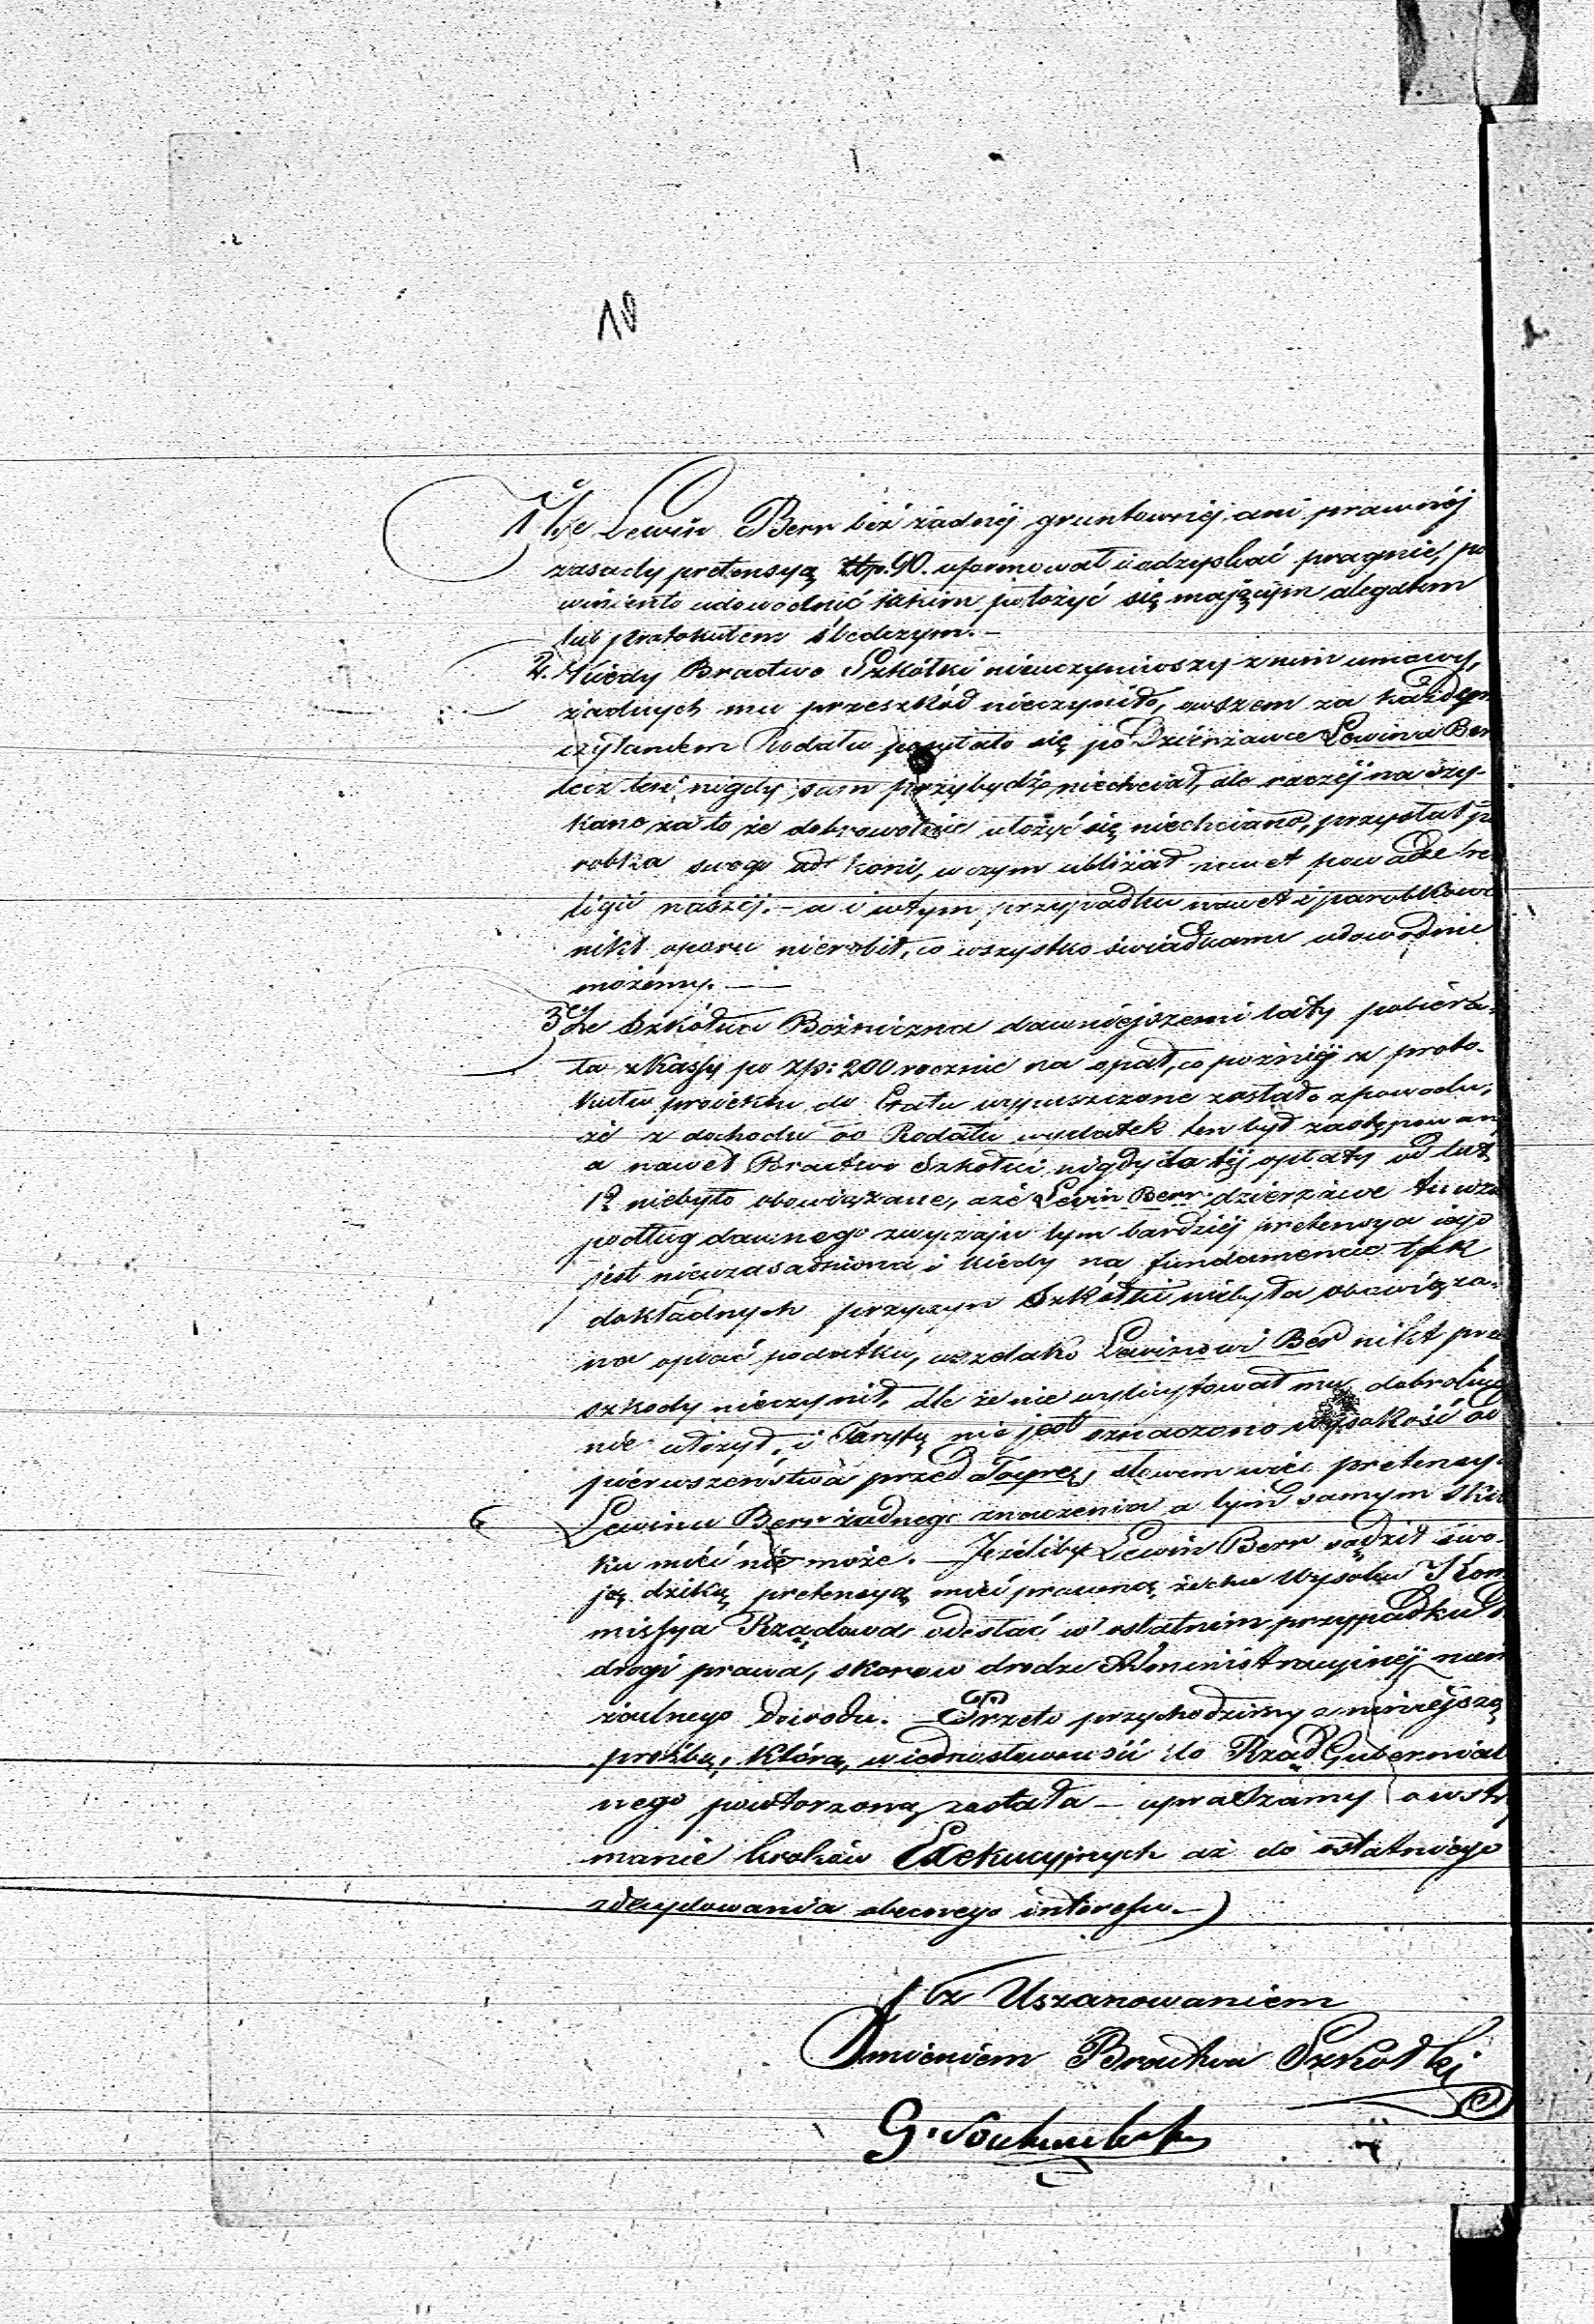 10
1. że Lewin Berr bez żadnéj gruntownéj ani prawnéj
zasady pretensyą Złp. 90. uformował i odzyskać pragnie, po
winien to udowodnić jakim położyć się mającym alegatem
lub protokułem śledczym. —
2. Kiedy Bractwo Szkółki nieuczyniwszy z nim umowy,
żadnych mu przeszkód nieczyniło, owszem za każdym
czytaniem Rodału posyłało się po Dzierżawce Lewina Ber
lecz ten nigdy sam przybydź niechciał, ale raczéj na szy-
kanę za to że dobrowolnie ułożyć się niechciano, przysłał pa
robka swego od koni, w czym ubliżał nawet powadze re
ligii naszéj. — a i w tym przypadku nawet i parobkowi
nikt oporu nierobił, co wszystko świadkami udowodnić
możemy. —
3. że Szkółka Bożniczna dawniejszemi laty pobiera-
ła z Kassy po Zp: 200 rocznie na opał, co poźniéj w proto-
kule projektu do Etatu wypuszczone zostało z powodu,
że z dochodu od Rodału wydatek ten był zastępowan
a nawet Bractwo Szkółki nigdy do téj opłaty od lat
19 niebyło obowiązane, a że Lewin Berr dzierżawę tu wzią
podług dawnego zwyczaju tym bardziéj pretensya jego
jest nieuzasadniona i kiedy na fundamencie tak
dokładnych przyczyn Szkółki niebyła obowiąza-
na opłać podatku, wszelako Lewinowi Ber nikt prze
szkody nieczynił, ale że nie wylicytował mu dobrowol
nie ułożył, i Taryfą nie jest oznaczono wysokość od
pierwszeństwa przed Torą, słowem więc pretensya
Lewina Berr żadnego znaczenia a tym samym sku
ku mieć nie może. — Jeżeliby Lewin Berr sądził swo-
ję dziką pretensyą mieć prawną, zechce Wysoka Kom
missya Rządowa odesłać w ostatnim przypadku do
drogi prawa, skoro w drodze Administracyjnéj niema
żadnego dowodu. — Przeto przychodzimy z niniejszą
prozbą, która w jednosłowności do Rząd Gubernial
nego powtorzoną została — upraszamy o wstrzy
manie kroków Exekucyjnych aż do ostatniego
zdecydowania obecnego interessu. —
Z Uszanowaniem
Imieniem Bractwa Szkółki